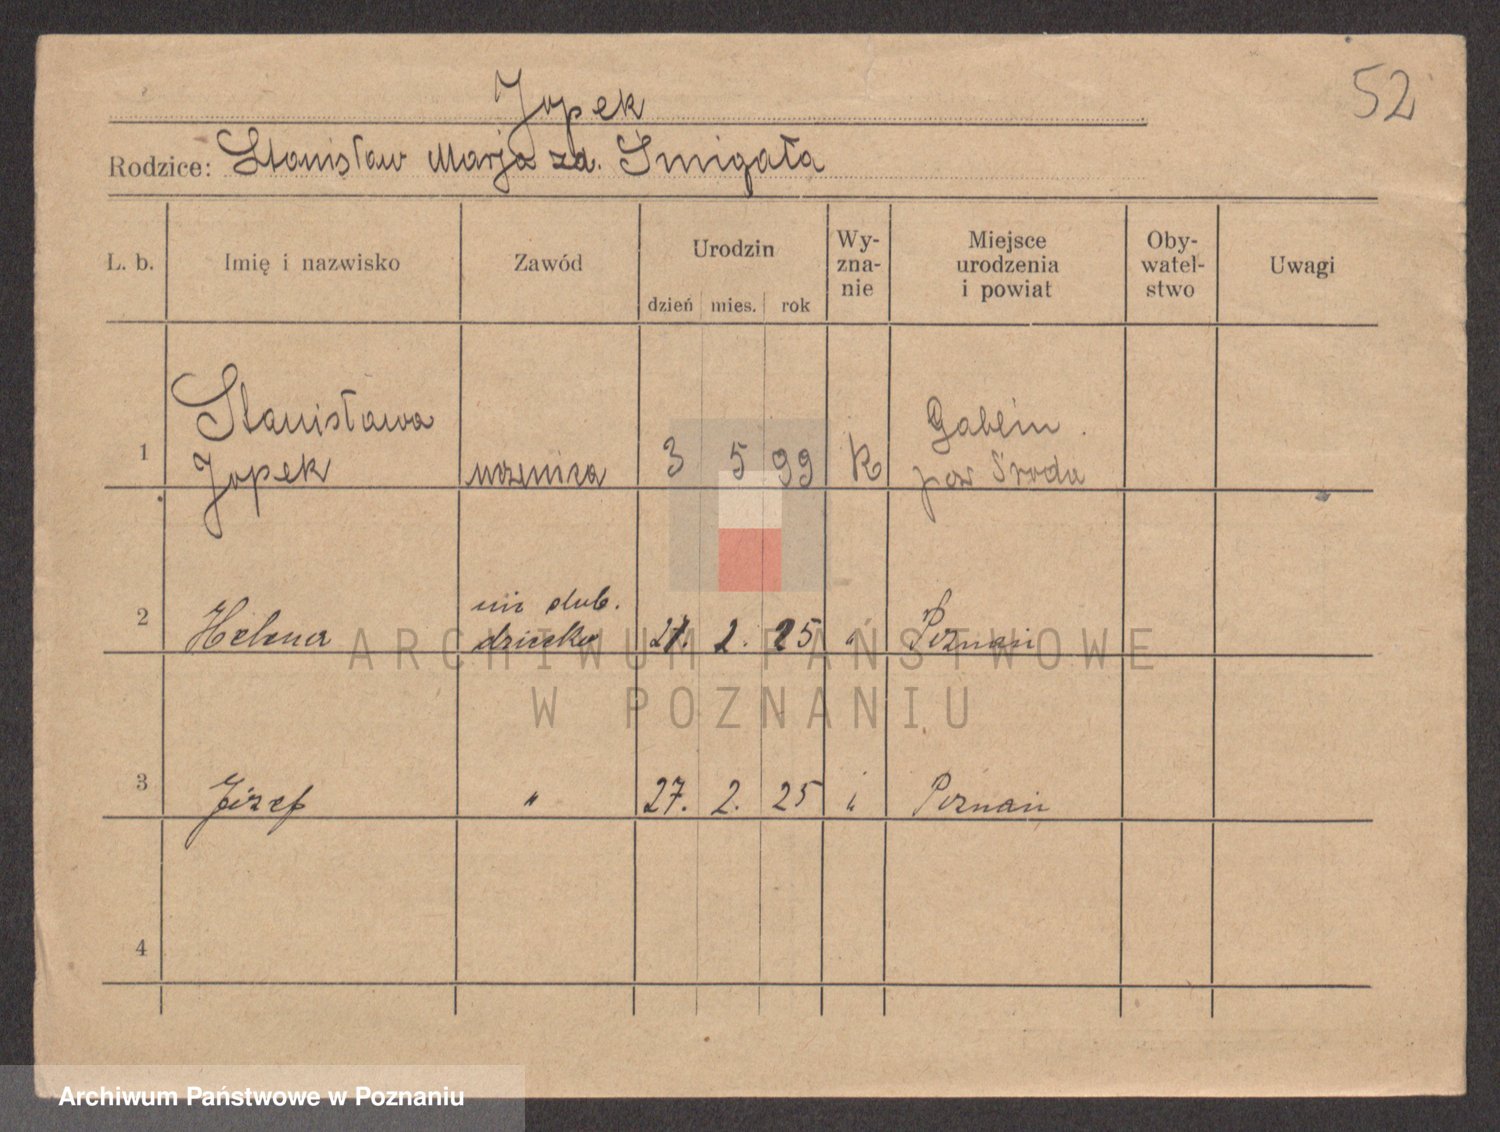 52
Jopek
Rodzice: Stanisław Marja zd. Śmigała
L. b. Imię i nazwisko Zawód Urodzin dzień mies. rok Wy-zna-nie Miejsce urodzenia i powiat Oby-watel-stwo Uwagi
Stanisława Gablin
1 Jopek 3 5 99 K pow Środa
nie slub.
2 Helena dziecko 27. 2. 25 " Poznań
3 Józef " 27. 2. 25 " Poznań
4
ARCHIWUM PAŃSTWOWE
W POZNANIU
Archiwum Państwowe w Poznaniu